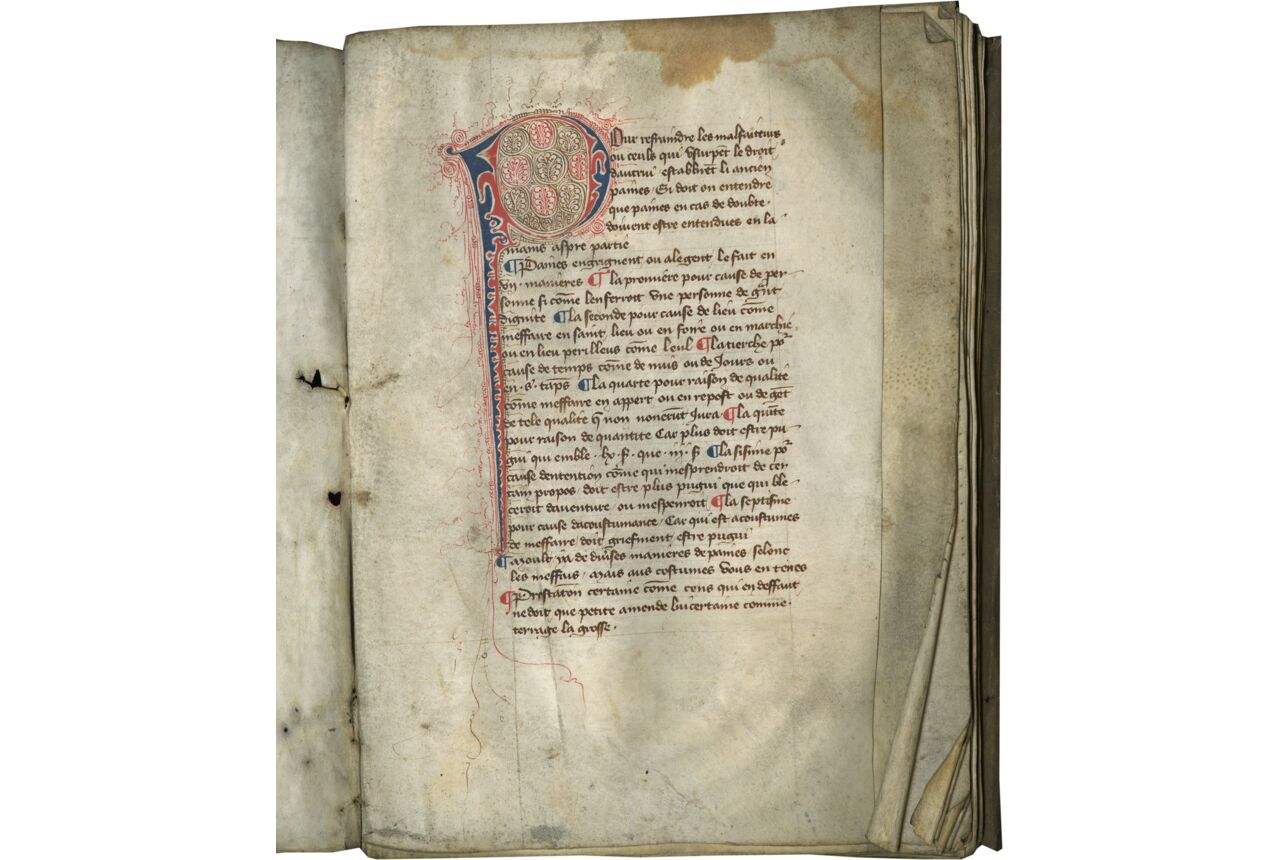 Pour restraindre les malfaiteurs
ou ceuls qui vsurpēt le droit
dautrui establirēt li ancien
paines. Si doit on entendre
que paines en cas de doubte.
doiuent estre entendues en la
mains aspre partie
¶ Paines engrignent ou alegent le fait en
vij. manieres ¶ la promiere pour cause de per-
sonne si cōme len ferroit vne personne de gͣnt
dignite ¶ la seconde pour cause de lieu cōme
meffaire en saint lieu ou en foire ou en marchie.
ou en lieu perilleus cōme leul ¶ la tierche poʳ
cause de temps cōme de nuis ou de Jours ou
en .s. tāps ¶ la quarte pour raison de qualite
cōme meffaire en appert ou en repost ou de gēt
de tele qualite q̄ non Jura. ¶ la quīte
pour raison de quantite Car plus doit estre pu-
gni qui emble .lx. s. que .iij. s ¶ la sisime poʳ
cause dentention cōme qui mesprendroit de cer-
tain propos / doit estre plus pugni que qui ble
ceroit dauenture / ou mespenroit ¶ la septisme
pour cause dacoustumance / Car qui est acoustumes
de meffaire / doit griefment estre pugni
¶ Moult ya de diu̾ses manieres de paines selonc
les meffais. Mais aus costumes vous en tenes
¶ Prestation certaine cōme cens qui en deffaut
ne doit que petite amende lui certaine comme.
terrage la grosse.